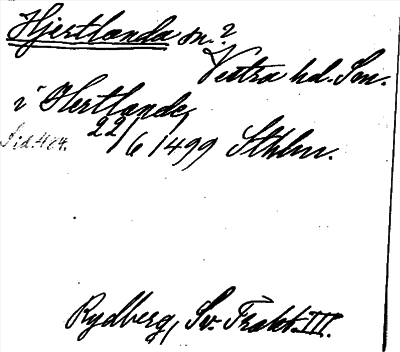 Hjertlanda sn.?
Vestra hd. Sm.
i Hertlande,
22/6 1499 Sthlm.
Sid. 424.
Rydberg, Sv. Trakt. III.